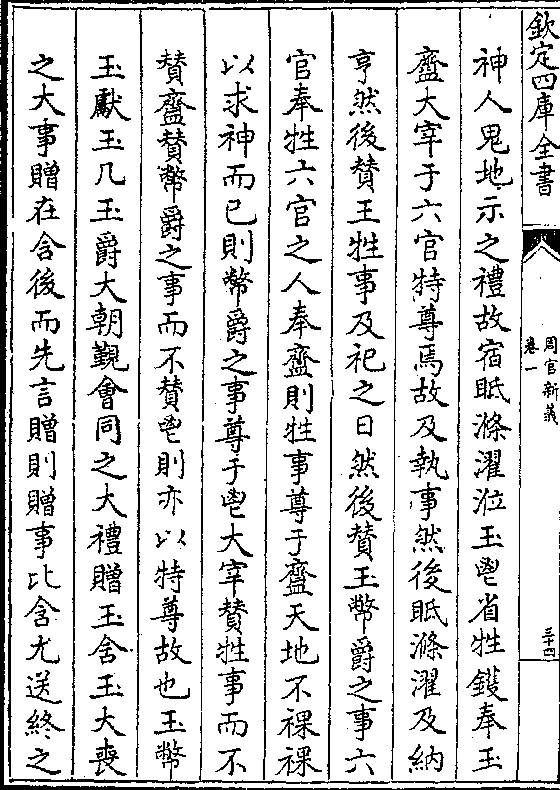 欽定四庫全書
周官新義
卷一
三十四
神人鬼地示之禮故宿眡滌濯涖玉鬯省牲鑊奉玉
齍大宰于六官特尊焉故及執事然後眡滌濯及納
亨然後贊王牲事及祀之日然後贊玉幣爵之事六
官奉牲六官之人奉齍則牲事尊于齍天地不祼祼
以求神而已則幣爵之事尊于鬯大宰贊牲事而不
贊齍贊幣爵之事而不贊鬯則亦以特尊故也玉幣
玉獻玉几玉爵大朝覲會同之大禮贈玉含玉大喪
之大事贈在含後而先言贈則贈事比含尤送終之